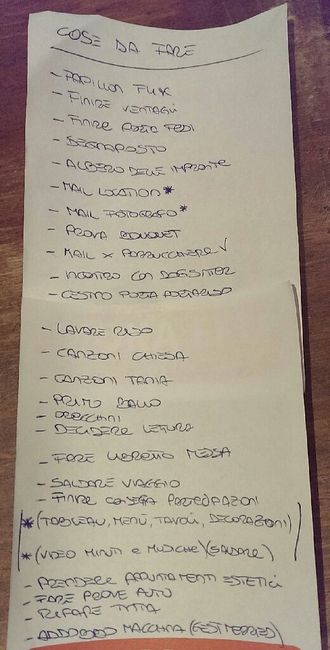 COSE DA FARE
- PAPILLON FLIK
- FINIRE VENTAGLI
- FINIRE PORTA FEDI
- SEGNAPOSTO
- ALBERO DELLE IMPRONTE
- MAIL LOCATION *
- MAIL FOTOGRAFO *
- PROVA BOUQUET
- MAIL X PARRUCCHIERE ✓
- INCONTRO CON DOGSITTER
- CESTINO PORTA
- LAVARE RISO
- CANZONI CHIESA
- CANZONI TANIA
- PRIMO BALLO
- ORECCHINI
- DECIDERE LETTURA
- FARE LIBRETTO MESSA
- SALDARE VIAGGIO
- FINIRE CONSEGNA PARTECIPAZIONI
* (TABLEAU, MENÙ, TAVOLI, DECORAZIONI)
* (VIDEO MINUTI E MUSICHE) (SALDARE)
- PRENDERE APPUNTAMENTI ESTETICI
- FARE PROVE AUTO
- RIFARE TINTA
- ADDOBBO MACCHINA